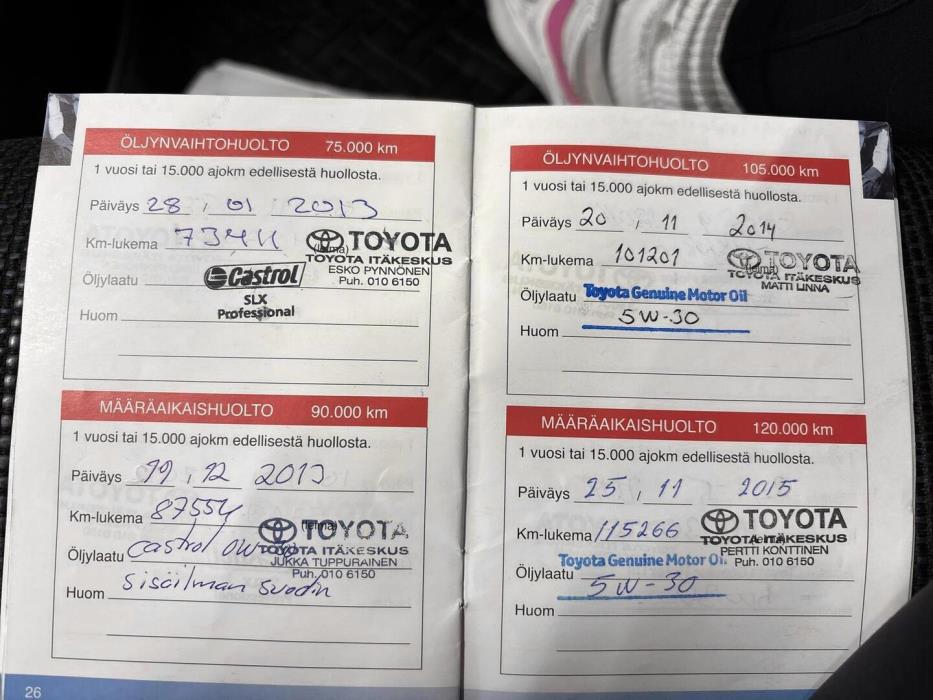 ÖLJYNVAIHTOHUOLTO 75.000 km
1 vuosi tai 15.000 ajokm edellisestä huollosta.
Päiväys 28 , 01 2013
Km-lukema
TOYOTA
TOYOTA ITÄKESKUS
ESKO PYNNÖNEN
Puh. 010 6150
Öljylaatu Castrol
SLX
Professional
Huom
MÄÄRÄAIKAISHUOLTO 90.000 km
1 vuosi tai 15.000 ajokm edellisestä huollosta.
Päiväys 19 , 12 2013
Km-lukema 87554
(leima)
TOYOTA
TOYOTA ITÄKESKUS
JUKKA TUPPURAINEN
Puh. 010 6150
Öljylaatu Castrol 0W
Huom sisäilman suodin
26
ÖLJYNVAIHTOHUOLTO 105.000 km
1 vuosi tai 15.000 ajokm edellisestä huollosta.
Päiväys 20 , 11 2014
Km-lukema 101201
(leima)
TOYOTA
TOYOTA ITÄKESKUS
MATTI LINNA
Öljylaatu Toyota Genuine Motor Oil
5W-30
Huom
MÄÄRÄAIKAISHUOLTO 120.000 km
1 vuosi tai 15.000 ajokm edellisestä huollosta.
Päiväys 25 , 11 2015
Km-lukema 115266
TOYOTA
TOYOTA ITÄKESKUS
PERTTI KONTTINEN
Puh. 010 6150
Toyota Genuine Motor Oil
Öljylaatu 5W-30
Huom